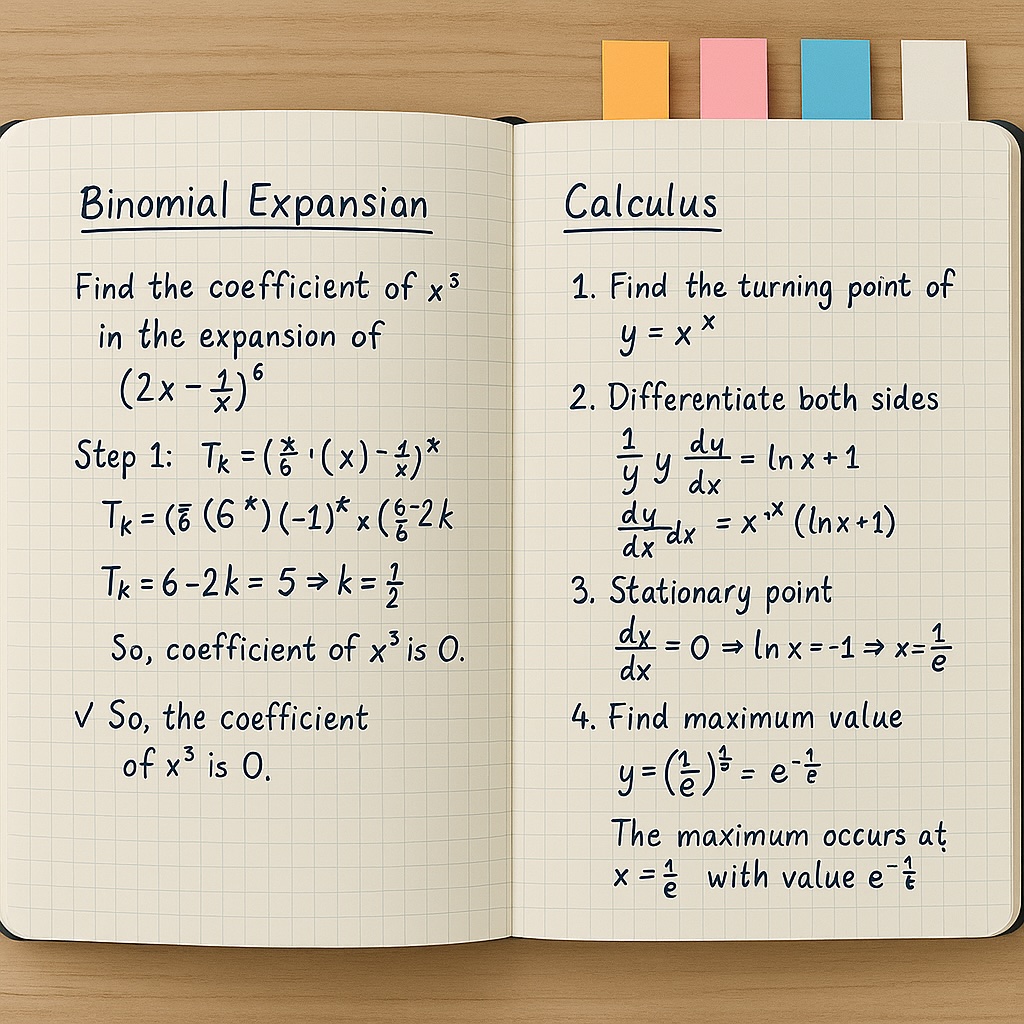 Binomial Expansian
Find the coefficient of x³
in the expansion of
(2x − 1/x)⁶
Step 1: Tₖ = (*/6 · (x) − 1/x)*
Tₖ = (6̄ (6*) (−1)* x (6/6 −2k
Tₖ = 6 − 2k = 5 ⇒ k = 1/2
So, coefficient of x³ is 0.
✓ So, the coefficient
of x³ is 0.
Calculus
1. Find the turning point of
y = x ˣ
2. Differentiate both sides
1/y y dy/dx = ln x + 1
dy/dx dx = x ·ˣ (ln x + 1)
3. Stationary point
dx/dx = 0 ⇒ ln x = −1 ⇒ x = 1/e
4. Find maximum value
y = (1/e) = e^−1/e
The maximum occurs at
x = 1/e with value e